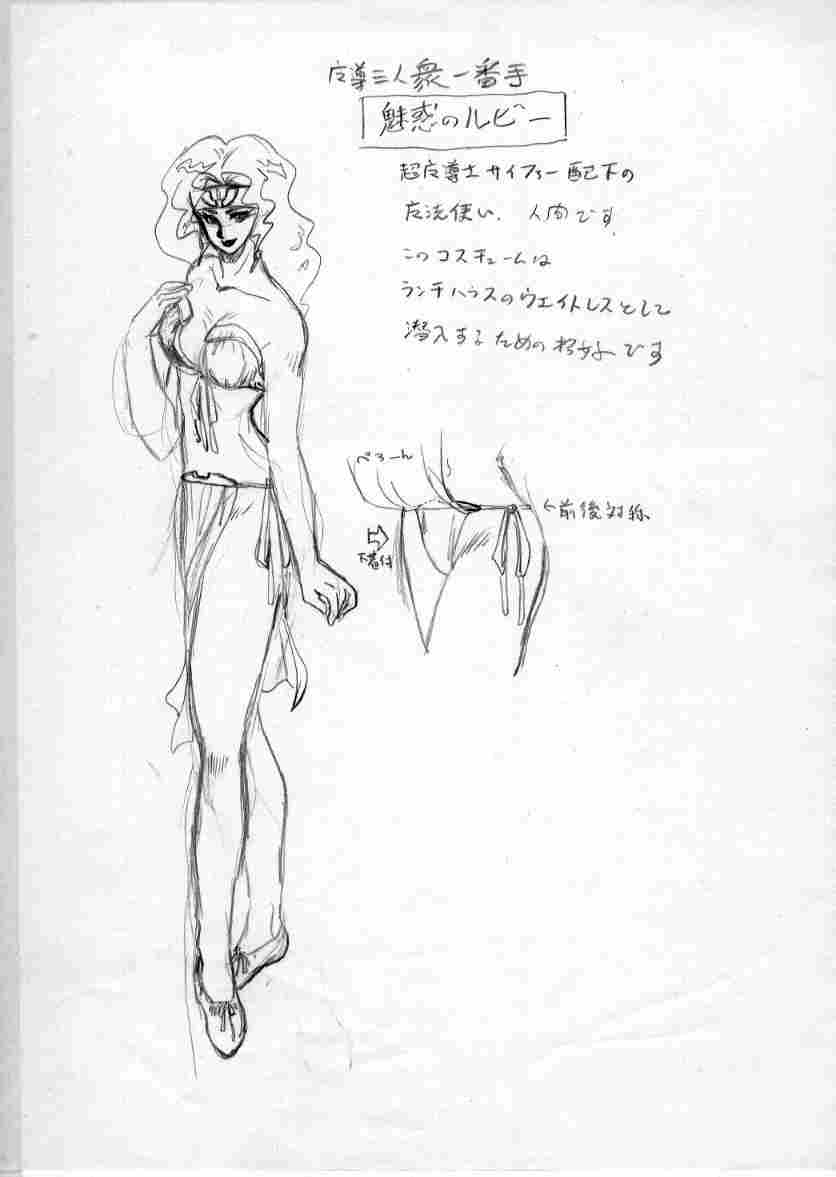 反導三人衆一番手
魅惑のルビー
超反導士サイファー配下の
反法使い、人間です
このコスチュームは
ランチハウスのウエイトレスとして
潜入するための格好です
ぺろーん
←前後対称
下着付